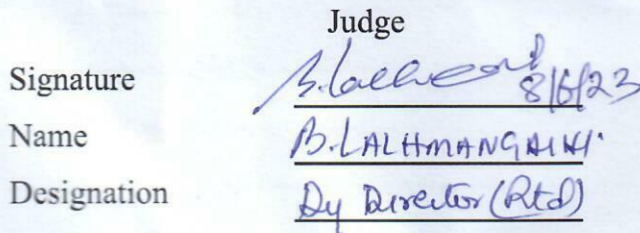 Judge
Signature B.Lalhm 8/6/23
Name B.LALHMANGAIHI.
Designation Dy Director (Rtd)